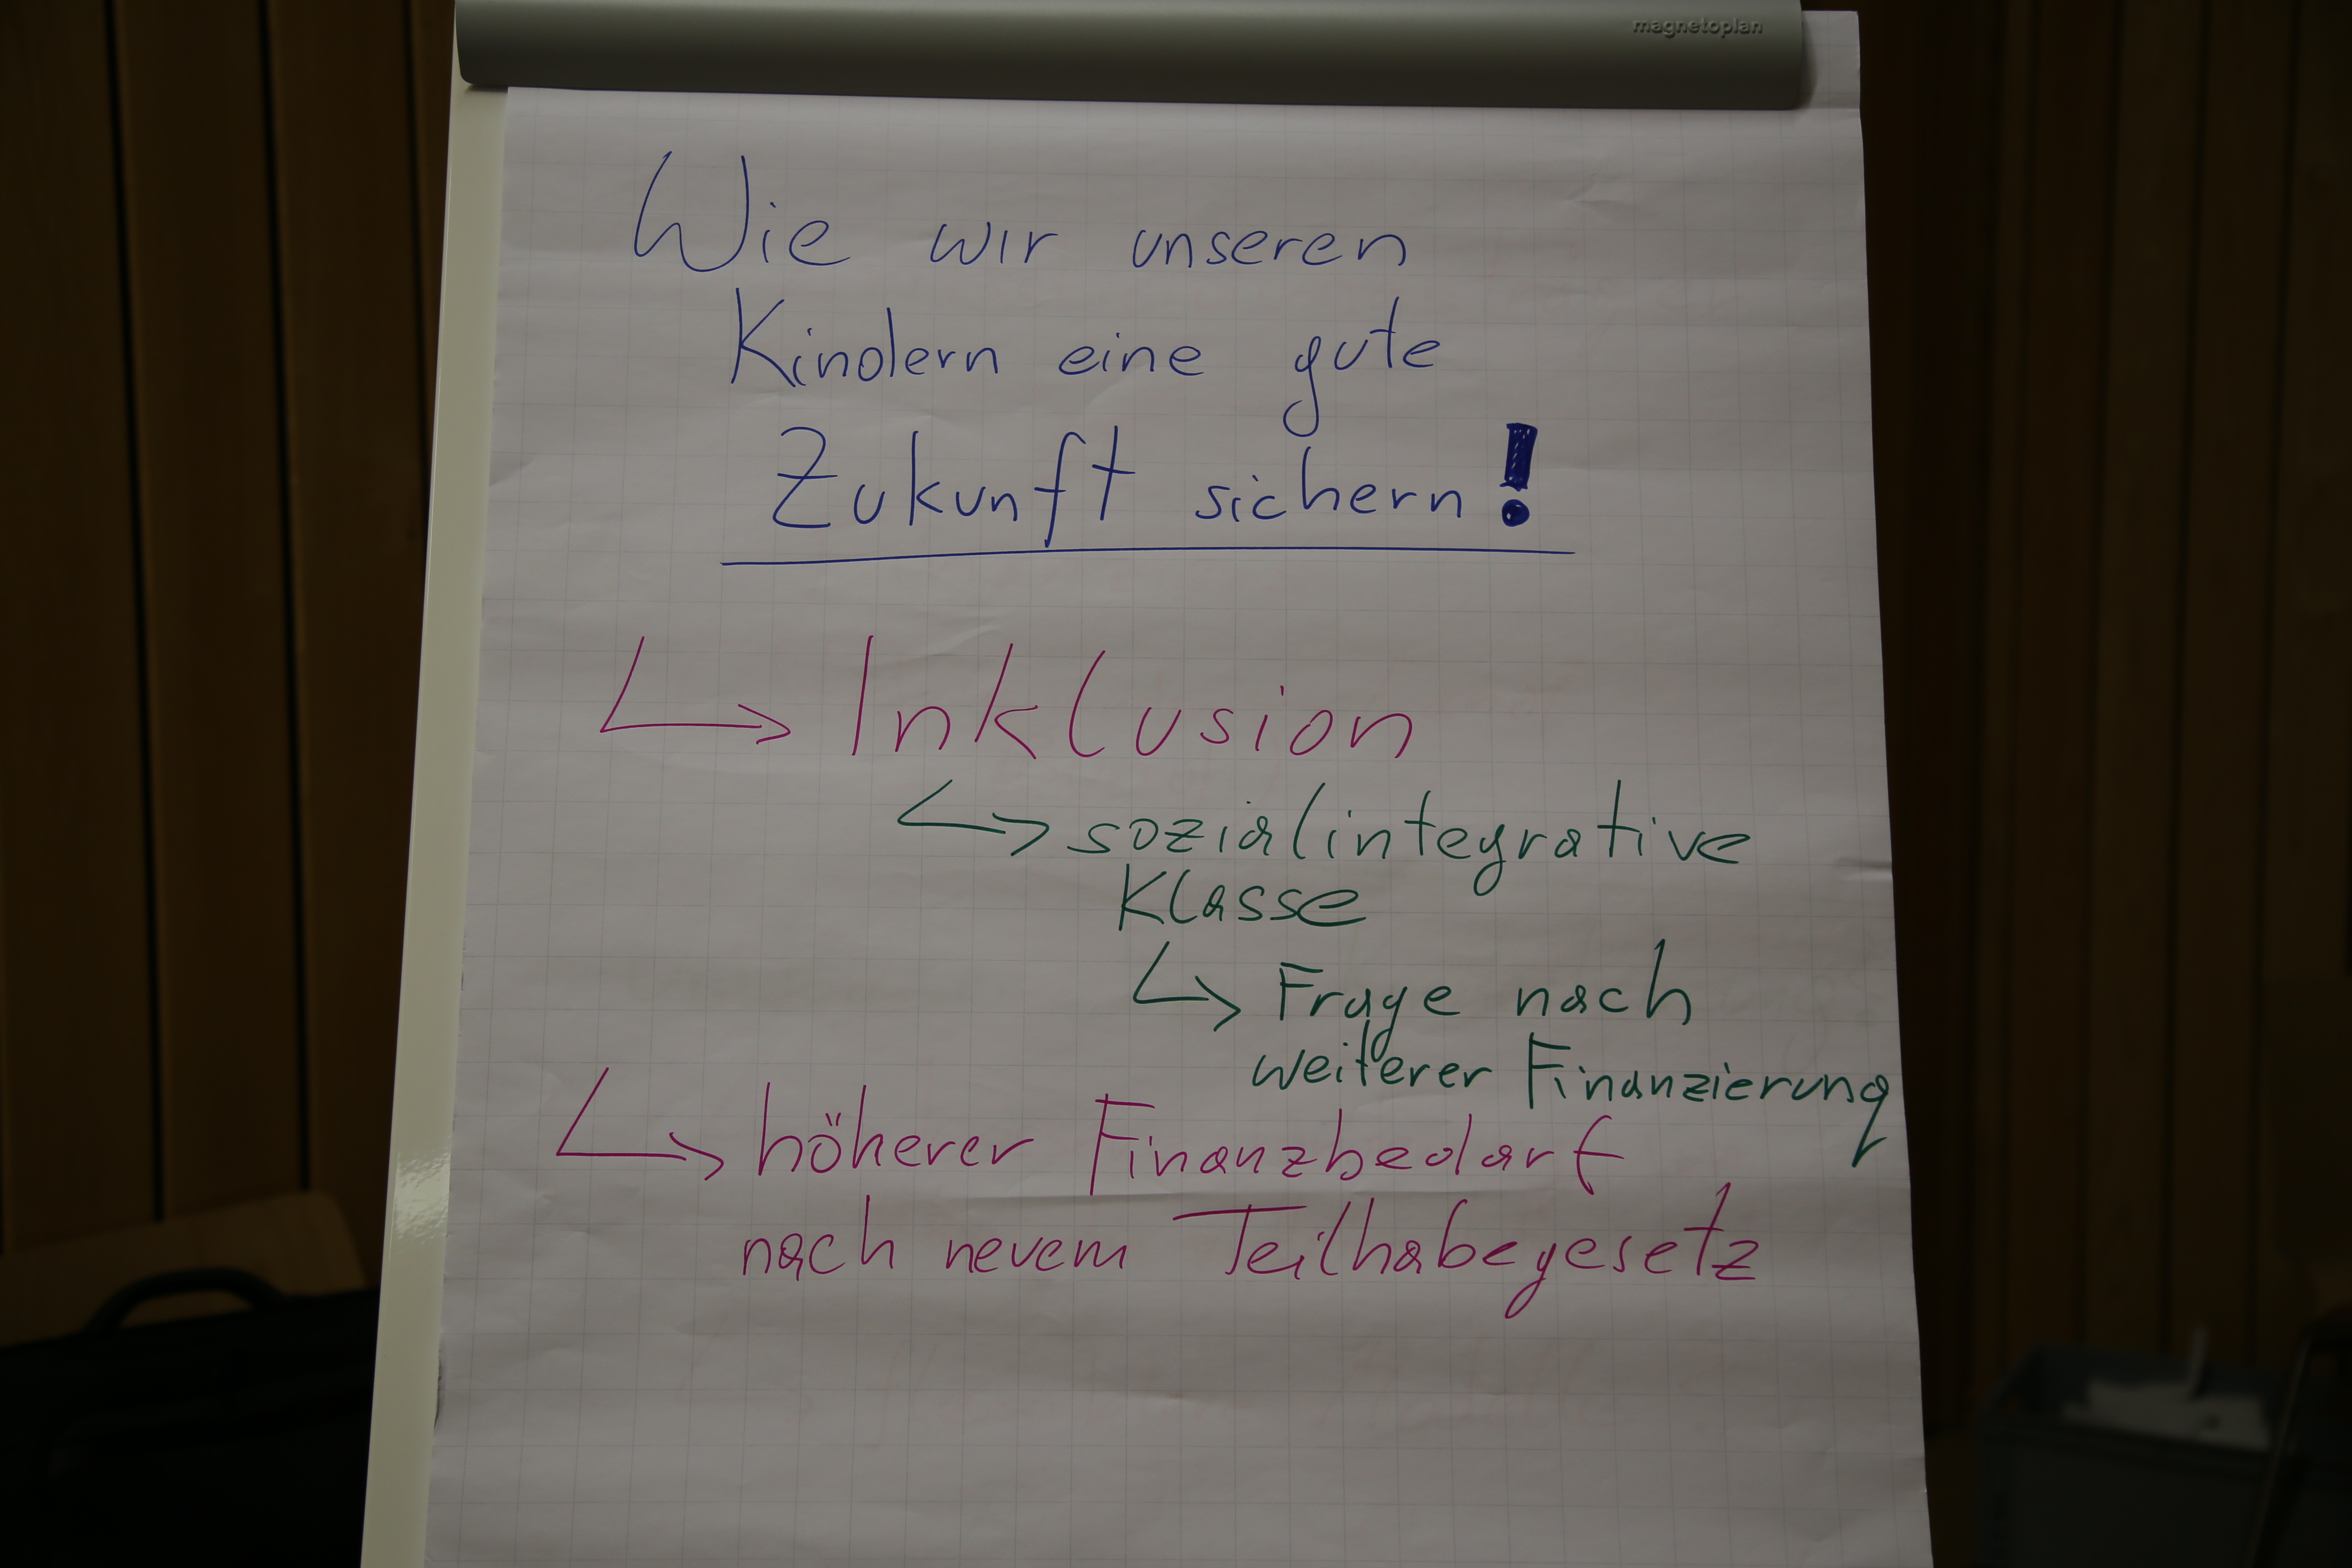 magnetoplan
Wie wir unseren
Kindern eine gute
Zukunft sichern!
↳ Inklusion
↳ sozialintegrative
Klasse
↳ Frage nach
weiterer Finanzierung
↳ höherer Finanzbedarf
nach neuem Teilhabegesetz